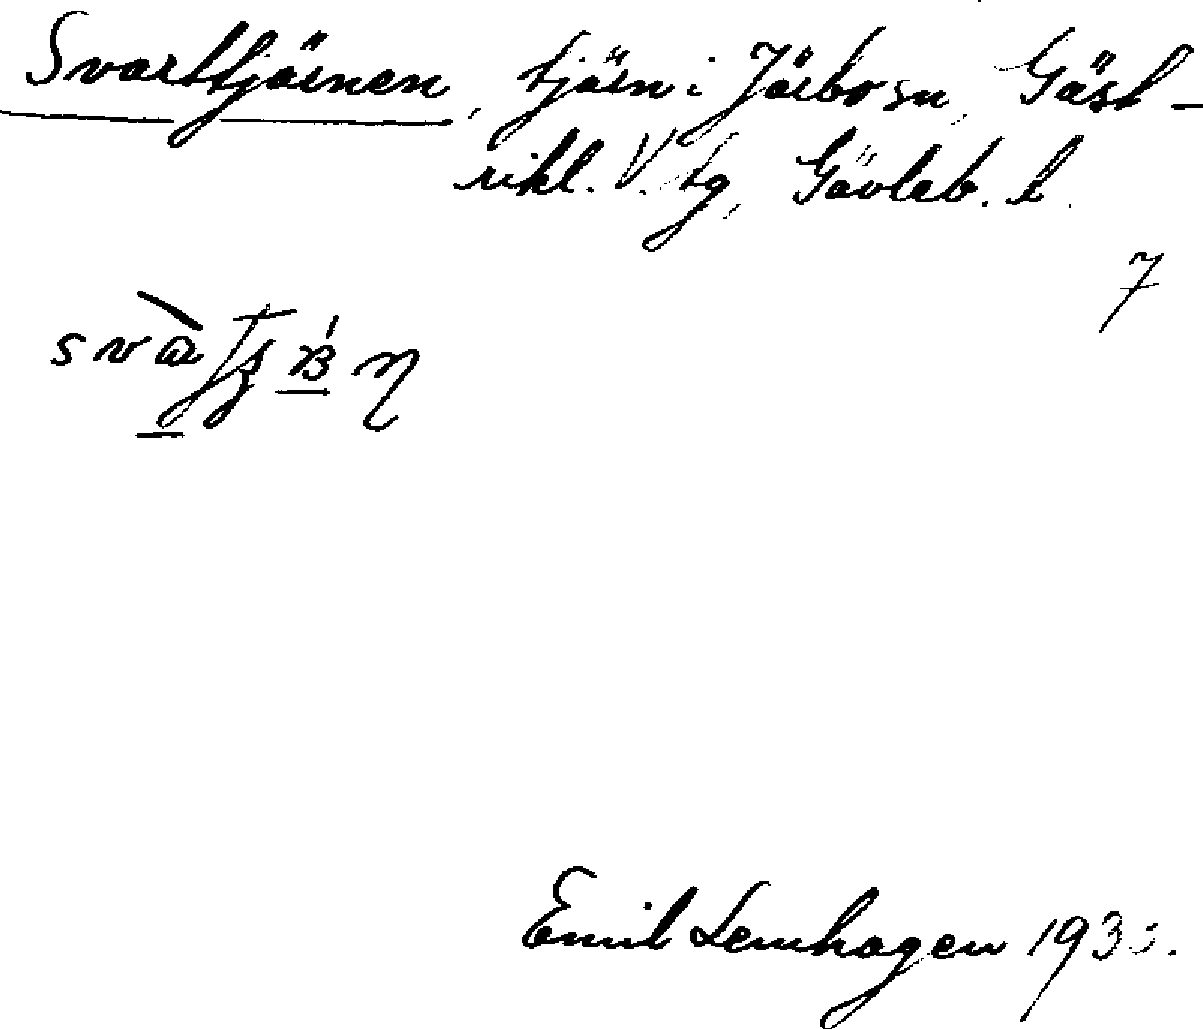 Svarttjärnen, tjärn i Järbo sn, Gäst-
rikl. V. tg, Gävleb. l.
7
Emil Lemhagen 193